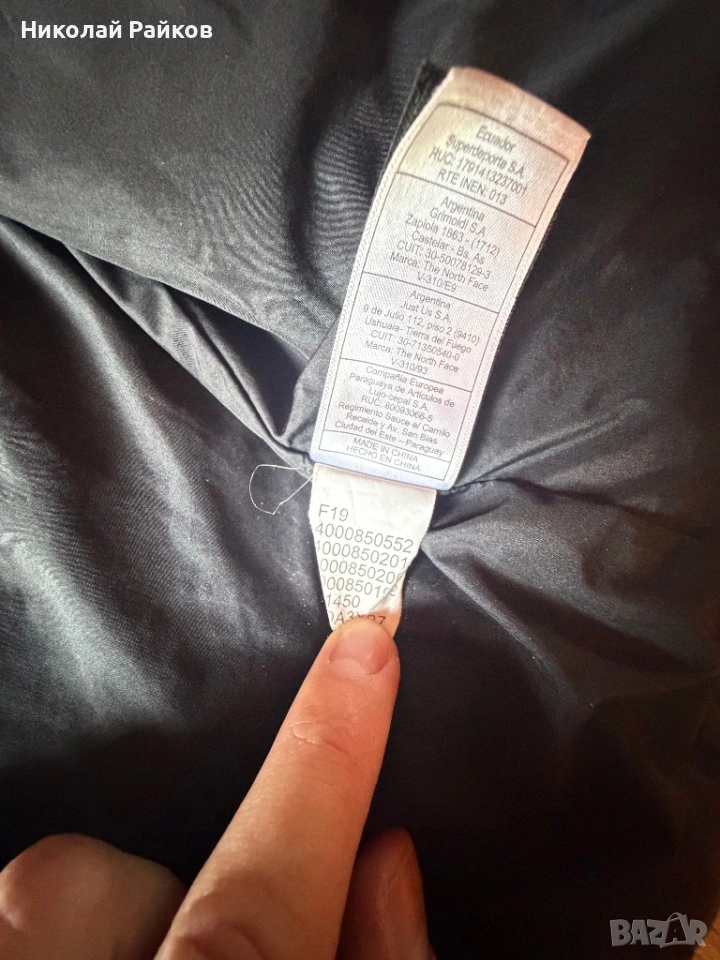 Николай Райков
Ecuador
Superdeporte S.A.
RUC: 1791413237001
RTE INEN: 013
Argentina
Grimoldi S.A
Zapiola 1863 - (1712)
Castelar - Bs. As
CUIT: 30-50078129-3
Marca: The North Face
V-310/E9
Argentina
Just Us S.A.
9 de Julio 112, piso 2 (9410)
Ushuaia- Tierra del Fuego
CUIT: 30-71350540-0
Marca: The North Face
V-310/93
Compañia Europea
Paraguaya de Articulos de
Lujo-cepal S.A.
RUC: 80093066-5
Regimiento Sauce e/ Camilo
Recalde y Av. San Blas
Ciudad del Este – Paraguay
MADE IN CHINA
HECHO EN CHINA
F19
4000850552
000850201
00085020
0008501
1450
0A3X
BAZAR